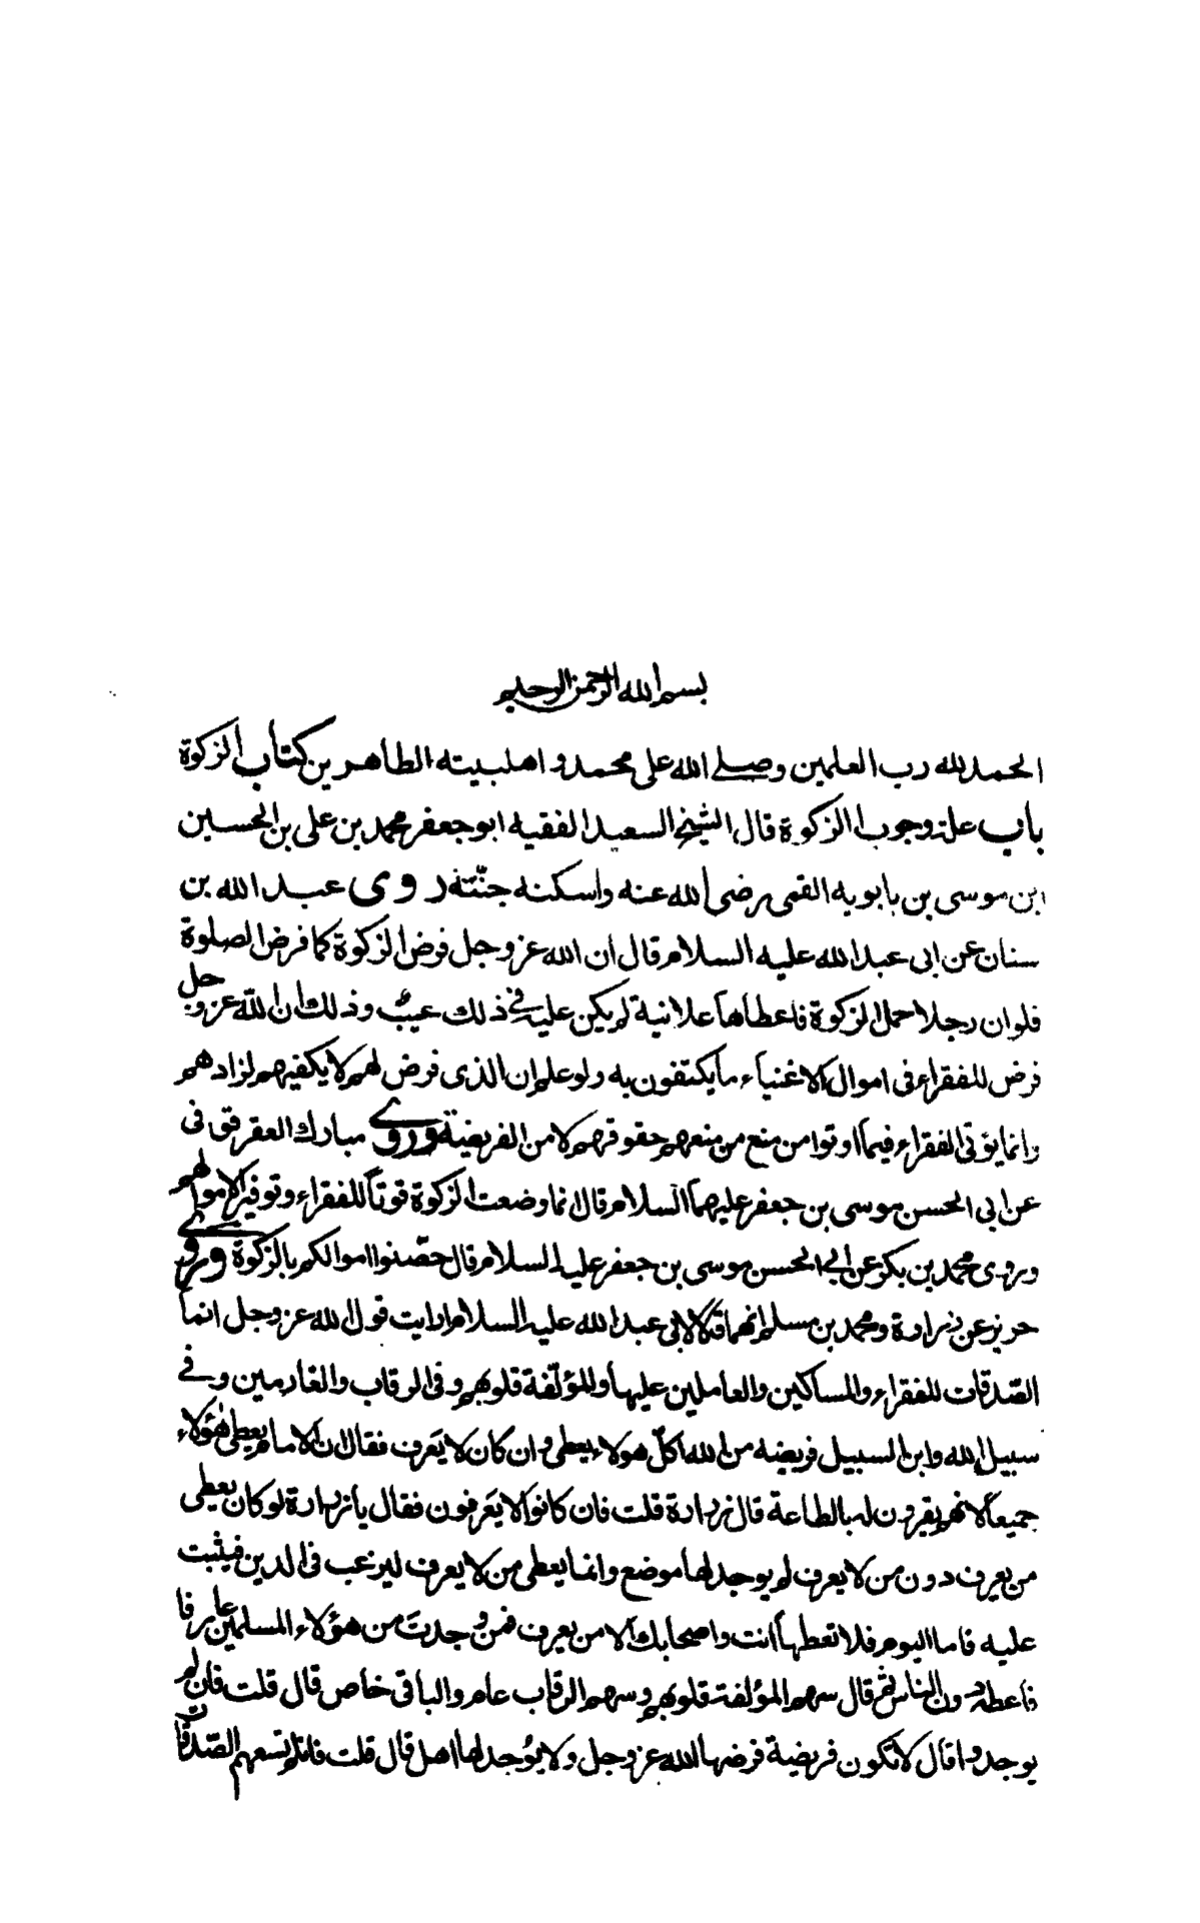 بسم الله الرحمن الرحيم
الحمد لله رب العلمين وصلے الله على محمد و اهلبيته الطاهرين كتاب الزكوة
باب علة وجوب الزكوة قال الشيخ السعيد الفقيه ابو جعفر محمد بن على بن الحسين
ابن موسى بن بابويه القمى رضى الله عنه واسكنه جنّته روى عبد الله بن
سنان عن ابى عبد الله عليه السلام قال ان الله عز وجل فرض الزكوة كما فرض الصلوة
فلو ان رجلا حمل الزكوة فاعطاها علانية لم يكن عليه فى ذلك عيبٌ وذلك ان الله عز وجل
فرض للفقراء فى اموال الاغنياء ما يكتفون به ولو علم ان الذى فرض لهم لا يكفيهم لزادهم
وانما يؤتى الفقراء فيما اوتوا من منع من منعهم حقوقهم لا من الفريضة وروى مبارك العقرقوفى
عن ابى الحسن موسى بن جعفر عليهما السلام قال انما وضعت الزكوة قوتاً للفقراء وتوفيرا لاموالهم
وروى محمد بن بكر عن ابى الحسن موسى بن جعفر عليه السلام قال حصّنوا اموالكم بالزكوة وروى
حريز عن زرارة ومحمد بن مسلم انهما قالا لابى عبد الله عليه السلام ارايت قول الله عز وجل انما
الصّدقات للفقراء والمساكين والعاملين عليها والمؤلّفة قلوبهم وفى الرقاب والغارمين وفى
سبيل الله وابن السبيل فريضه من الله اكلّ هولاء يعطى وان كان لا يَعرف فقال ان الامام يعطى هؤلاء
جميعاً لانهم يقرون له بالطاعة قال زرارة قلت فان كانوا لا يَعرفون فقال يا زرارة لو كان يعطى
من يعرف دون من لا يعرف لم يوجد لها موضع وانما يعطى من لا يعرف ليرغب فى الدين فيثبت
عليه فاما اليوم فلا تعطها انت واصحابك الا من يعرف فمن وجدتَ من هؤلاء المسلمين عارفا
فاعطه دون الناس ثم قال سهم المؤلفة قلوبهم وسهم الرقاب عام والباقى خاص قال قلت فان لم
يوجدوا قال لا تكون فريضة فرضها الله عز وجل ولا يُوجد لها اهل قال قلت فان لم تسعهم الصّدقات